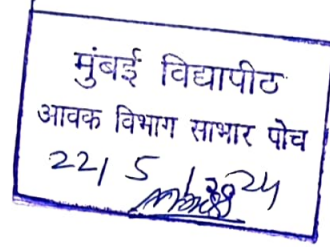 मुंबई विद्यापीठ
आवक विभाग साभार पोच
22/5/24